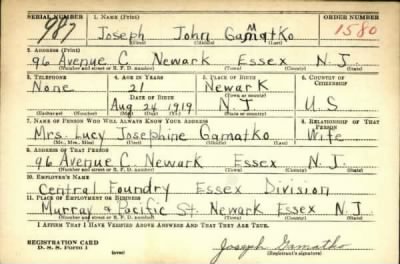 SERIAL NUMBER 1. NAME (Print) ORDER NUMBER
987 Joseph John Gammatko 1580
(First) (Middle) (Last)
2. ADDRESS (Print)
96 Avenue C Newark Essex N.J.
(Number and street or R. F. D. number) (Town) (County) (State)
3. TELEPHONE 4. AGE IN YEARS 5. PLACE OF BIRTH 6. COUNTRY OF CITIZENSHIP
None 21 Newark
DATE OF BIRTH (Town or county)
Aug 24 1919 N.J U S
(Mo.) (Day) (Yr.) (State or country)
7. NAME OF PERSON WHO WILL ALWAYS KNOW YOUR ADDRESS 8. RELATIONSHIP OF THAT PERSON
Mrs. Lucy Josephine Gamatko Wife
(Mr., Mrs., Miss) (First) (Middle) (Last)
9. ADDRESS OF THAT PERSON
96 Avenue C Newark Essex N.J.
(Number and street or R. F. D. number) (Town) (County) (State)
10. EMPLOYER'S NAME
Central Foundry Essex Division
11. PLACE OF EMPLOYMENT OR BUSINESS
Murray & Pacific St. Newark Essex N.J.
(Number and street or R. F. D. number) (Town) (County) (State)
I AFFIRM THAT I HAVE VERIFIED ABOVE ANSWERS AND THAT THEY ARE TRUE.
REGISTRATION CARD
D. S. S. Form 1 (over) Joseph Gamatko
(Registrant's signature)